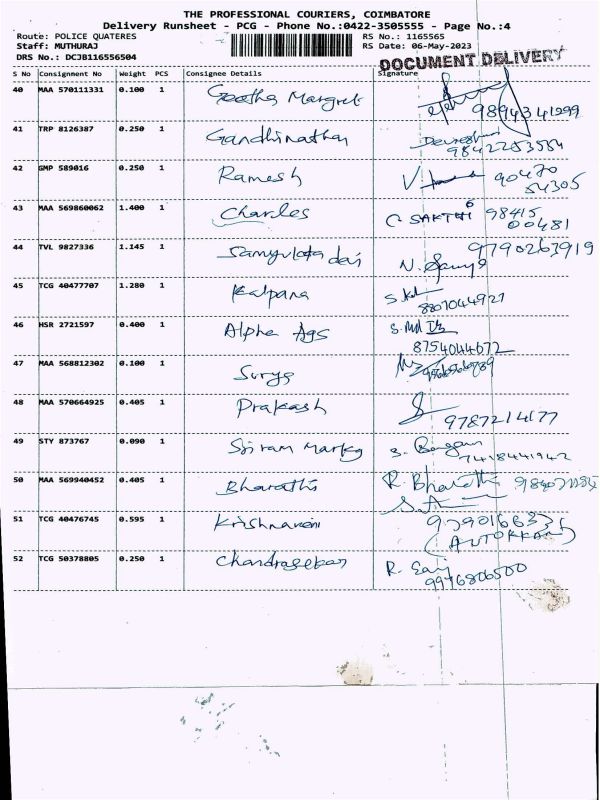 THE PROFESSIONAL COURIERS, COIMBATORE
Delivery Runsheet - PCG - Phone No.:0422-3505555 - Page No.:4
Route: POLICE QUATERES RS No.: 1165565
Staff: MUTHURAJ RS Date: 06-May-2023
DRS No.: DCJB116556504
DOCUMENT DELIVERY
S No Consignment No Weight PCS Consignee Details Signature
40 MAA 570111331 0.100 1 Geetha Margret
9894341299
41 TRP 8126387 0.250 1 Gandhinathan
9842253554
42 GMP 589016 0.250 1 Ramesh 90470
54305
43 MAA 569860062 1.400 1 Charles C SAKTHI 98415
00481
44 TVL 9827336 1.145 1 Samyulata devi 9790263919
45 TCG 40477707 1.280 1 Kalpana
8807044927
46 HSR 2721597 0.400 1 Alpha Ags
8754044672
47 MAA 568812302 0.100 1 Surya
48 MAA 570664925 0.405 1 Prakash
9787214177
49 STY 873767 0.090 1 Sriram Markg
7418441942
50 MAA 569940452 0.405 1 Bharathi R. Bharathi
51 TCG 40476745 0.595 1 Krishnaveni
52 TCG 50378805 0.250 1 Chandrasekar
9976806500